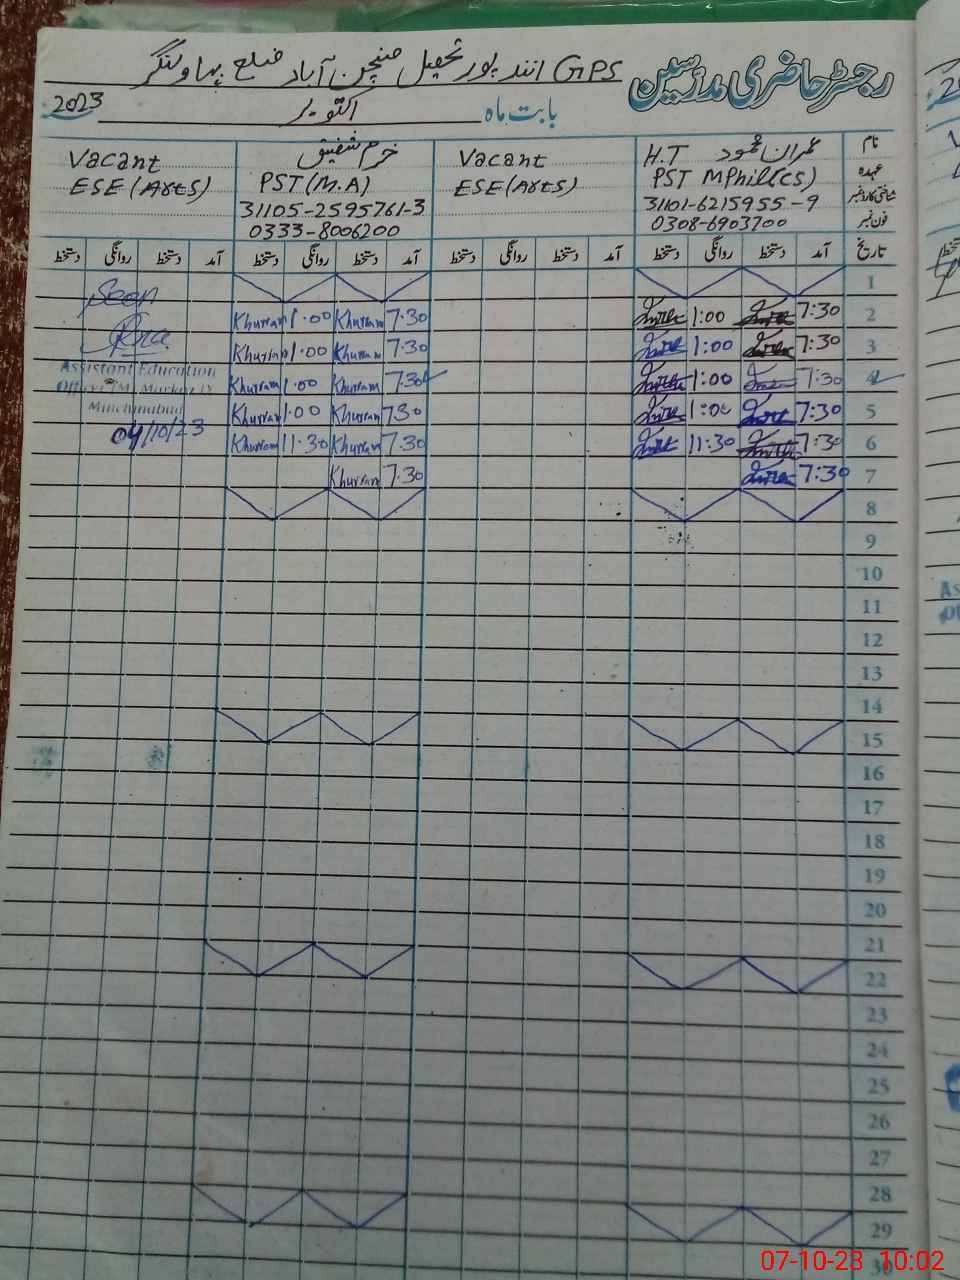 رجسٹر حاضری مدرسین
GPS انند پور تحصیل منچن آباد ضلع بہاولنگر
بابت ماہ اکتوبر 2023
نام عمران محمود H.T Vacant خرم شفیق Vacant
عہدہ PST MPhill(CS) ESE(Arts) PST(M.A) ESE(Arts)
شناختی کارڈ نمبر 31101-6215955-9 31105-2595761-3
فون نمبر 0308-6903700 0333-8006200
تاریخ آمد دستخط روانگی دستخط آمد دستخط روانگی دستخط آمد دستخط روانگی دستخط آمد دستخط روانگی دستخط
1
2 7:30 1:00 7:30 Khurram 1:00 Khurram
3 7:30 1:00 7:30 Khurram 1:00 Khurram
4 7:30 1:00 7:30 Khurram 1:00 Khurram
5 7:30 1:00 7:30 Khurram 1:00 Khurram
6 7:30 11:30 7:30 Khurram 11:30 Khurram
7 7:30 7:30 Khurram
8
9
10
11
12
13
14
15
16
17
18
19
20
21
22
23
24
25
26
27
28
29
30
Seen
Assistant Education
Officer (M) Markaz
Minchinabad
04/10/23
07-10-23 10:02